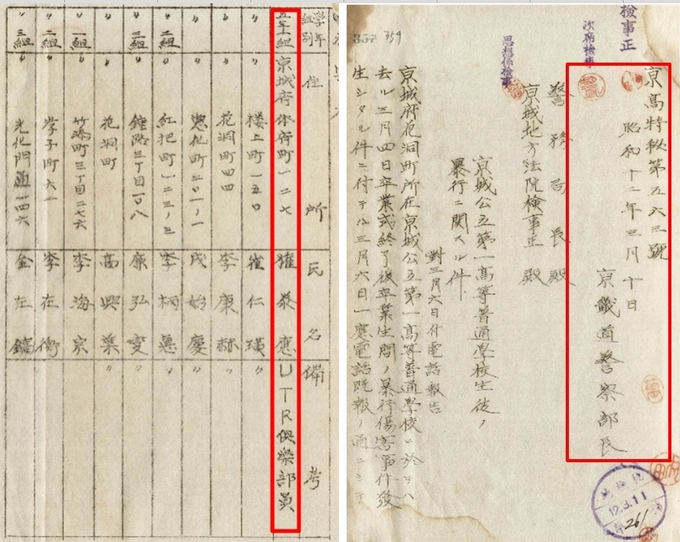 學年
組別
住所
氏名
備考
五年一組 京城府体府町一二七 崔泰應 UTR俱樂部員
〃 〃 楼上町一五〇 崔仁璜 〃
〃 〃 花洞町四四 李康赫 〃
〃 〃 成始慶 〃
二組 〃 李炳惠 〃
三組 〃 鍾路三丁目一〇八 康弘燮 〃
〃 〃 花洞町 高興業 〃
一組 〃 竹添町三丁目二七六 李海宗 〃
二組 〃 李在衡 〃
三組 〃 光化門通一四六 金在鎬 〃
檢事正
次席檢事
思想係檢事
357 359
京高特秘第五六三號
昭和十二年三月十日
京畿道警察部長
警務局長殿
京城地方法院檢事正殿
京城公立第一高等普通學校生徒ノ
暴行ニ関スル件
對三月六日付電話報告
京城府花洞町所在京城公立第一高等普通學校ニ於テハ
去ル三月四日卒業式終了後卒業生間ノ暴行傷害事件發
生シタル件ニ付テハ三月六日一應電話既報ノ通ニシテ
12.3.11
261